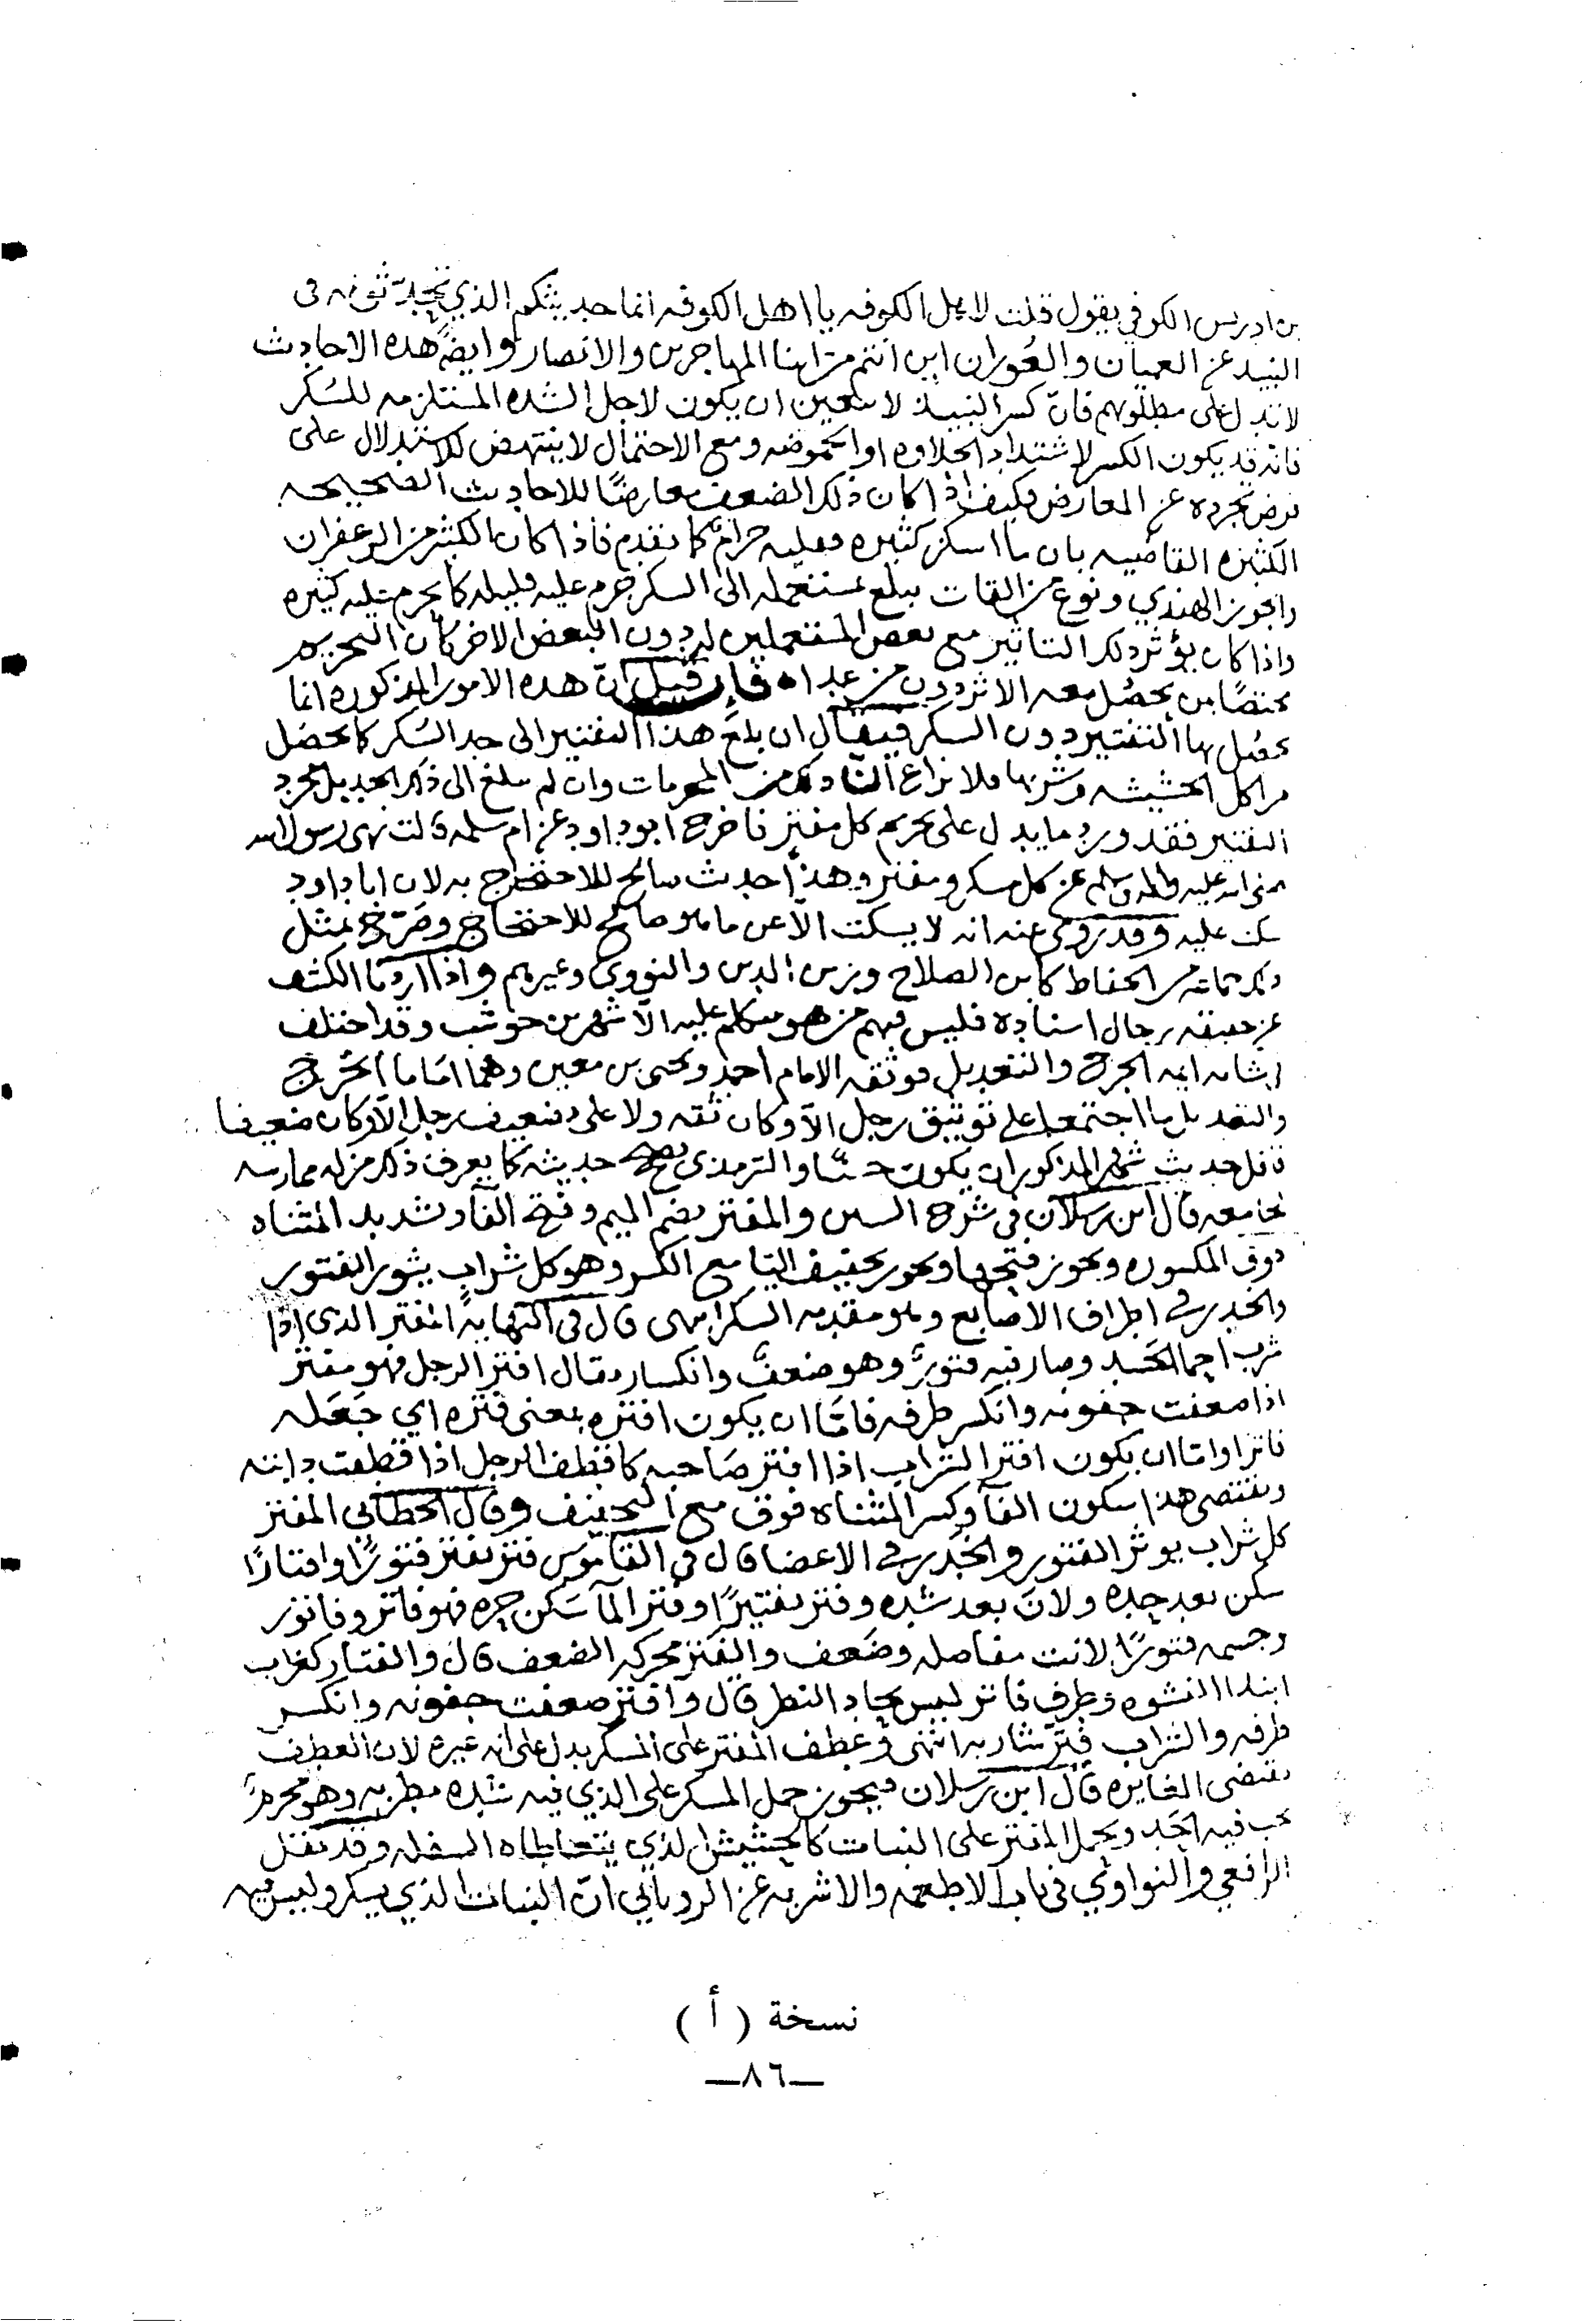 بن ادريس الكوفي يقول قلت لاهل الكوفه يا اهل الكوفه انما حديثكم الذي تحدثونه في
النبيذ عن العميان والعوران اين انتم من ابنا المهاجرين والانصار وايضًا هذه الاحاديث
لا تدل على مطلوبهم فان كسر النبيذ لا يتعين ان يكون لاجل الشده المستلزمه للسكر
فانه قد يكون الكسر لاشتداد الحلاوه او الحموضه ومع الاحتمال لا ينتهض للاستدلال على
فرض تجرده عن المعارض فكيف اذا كان ذلك الضعف معارضًا للاحاديث الصحيحه
الكثيره القاضيه بان ما اسكر كثيره فقليله حرام كما تقدم فاذا كان الكثير من الزعفران
والجوز الهندي ونوع من القات يبلغ بمستعمله الى السكر حرم عليه قليله كما يحرم عليه كثيره
واذا كان يؤثر ذلك التاثير مع بعض المستعملين له دون البعض الاخر كان التحريم
مختصًا بمن يحصل معه الاثر دون من عداه فان قيل ان هذه الامور المذكوره انما
يحصل بها التفتير دون السكر فيقال ان بلغ هذا التفتير الى حد السكر كما يحصل
من اكل الحشيشه وشربها فلا نزاع انها من المحرمات وان لم يبلغ الى ذلك الحد بل مجرد
التفتير فقد ورد ما يدل على تحريم كل مفتر فاخرج ابو داود عن ام سلمه قالت نهى رسول الله
صلى الله عليه واله وسلم عن كل مسكر ومفتر وهذا حديث صالح للاحتجاج به لان ابا داود
سكت عليه وقد روي عنه انه لا يسكت الا عن ما هو صالح للاحتجاج وصرح بمثل
ذلك جماعه من الحفاظ كابن الصلاح وزين الدين والنووي وغيرهم واذا اردنا الكشف
عن حقيقه رجال اسناده فليس فيهم من هو متكلم عليه الا شهر بن حوشب وقد اختلف
في شانه ايمه الجرح والتعديل فوثقه الامام احمد ويحيى بن معين وهما اماما الجرح
والتعديل ما اجتمعا على توثيق رجل الا وكان ثقه ولا على تضعيف رجل الا وكان ضعيفا
فاقل حديث شهر المذكور ان يكون حسنا والترمذي يصحح حديثه كما يعرف ذلك من له ممارسه
بجامعه قال ابن رسلان في شرح السنن والمفتر بضم الميم وفتح الفا وتشديد المثناه
فوق المكسوره ويجوز فتحها ويجوز تخفيف التا مع الكسر وهو كل شراب يثور الفتور
والخدر في اطراف الاصابع وهو مقدمه السكر انتهى قال في النهايه المفتر الذي اذا
شرب احمى الجسد وصار فيه فتورٌ وهو ضعفٌ وانكسار يقال افتر الرجل فهو مفتر
اذا ضعفت جفونه وانكسر طرفه فاما ان يكون افتره بمعنى فتره اي جعله
فاترا واما ان يكون افتر الشراب اذا افتر صاحبه كاقطف الرجل اذا قطفت دابته
ويقتضي هذا سكون الفا وكسر المثناه فوق مع التخفيف وقال الخطابي المفتر
كل شراب يورث الفتور والخدر في الاعضا قال في القاموس فتر يفتر فتورًا وافتارًا
سكن بعد حده ولان بعد شده وفتر تفتيرًا وفتر الما سكن حره فهو فاتر وفاتور
وجسمه فتورًا لانت مفاصله وضعف والفتر محركه الضعف قال والفتار كغراب
ابتدا النشوه وطرف فاتر ليس بحاد النظر قال وافتر ضعفت جفونه وانكسر
طرفه والشراب فتر شاربه انتهى وعطف المفتر على المسكر يدل على انه غيره لان العطف
يقتضي المغايره قال ابن رسلان فيجوز حمل المسكر على الذي فيه شده مطربه وهو محرم
يجب فيه الحد ويحمل المفتر على النبات كالحشيش الذي يتعاطاه السفله وقد نقل
الرافعي والنواوي في باب الاطعمه والاشربه عن الروياني ان النبات الذي يسكر وليس فيه
نسخة ( أ )
—٨٦—